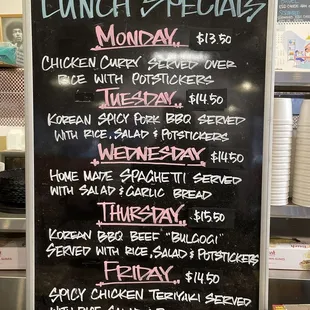 LUNCH SPECIALS
MONDAY.. $13.50
CHICKEN CURRY SERVED OVER
RICE WITH POTSTICKERS
TUESDAY.. $14.50
KOREAN SPICY PORK BBQ SERVED
WITH RICE, SALAD & POTSTICKERS
WEDNESDAY $14.50
HOME MADE SPAGHETTI SERVED
WITH SALAD & GARLIC BREAD
THURSDAY.. $15.50
KOREAN BBQ BEEF "BULGOGI"
SERVED WITH RICE, SALAD & POTSTICKERS
FRIDAY.. $14.50
SPICY CHICKEN TERIYAKI SERVED
WITH RICE